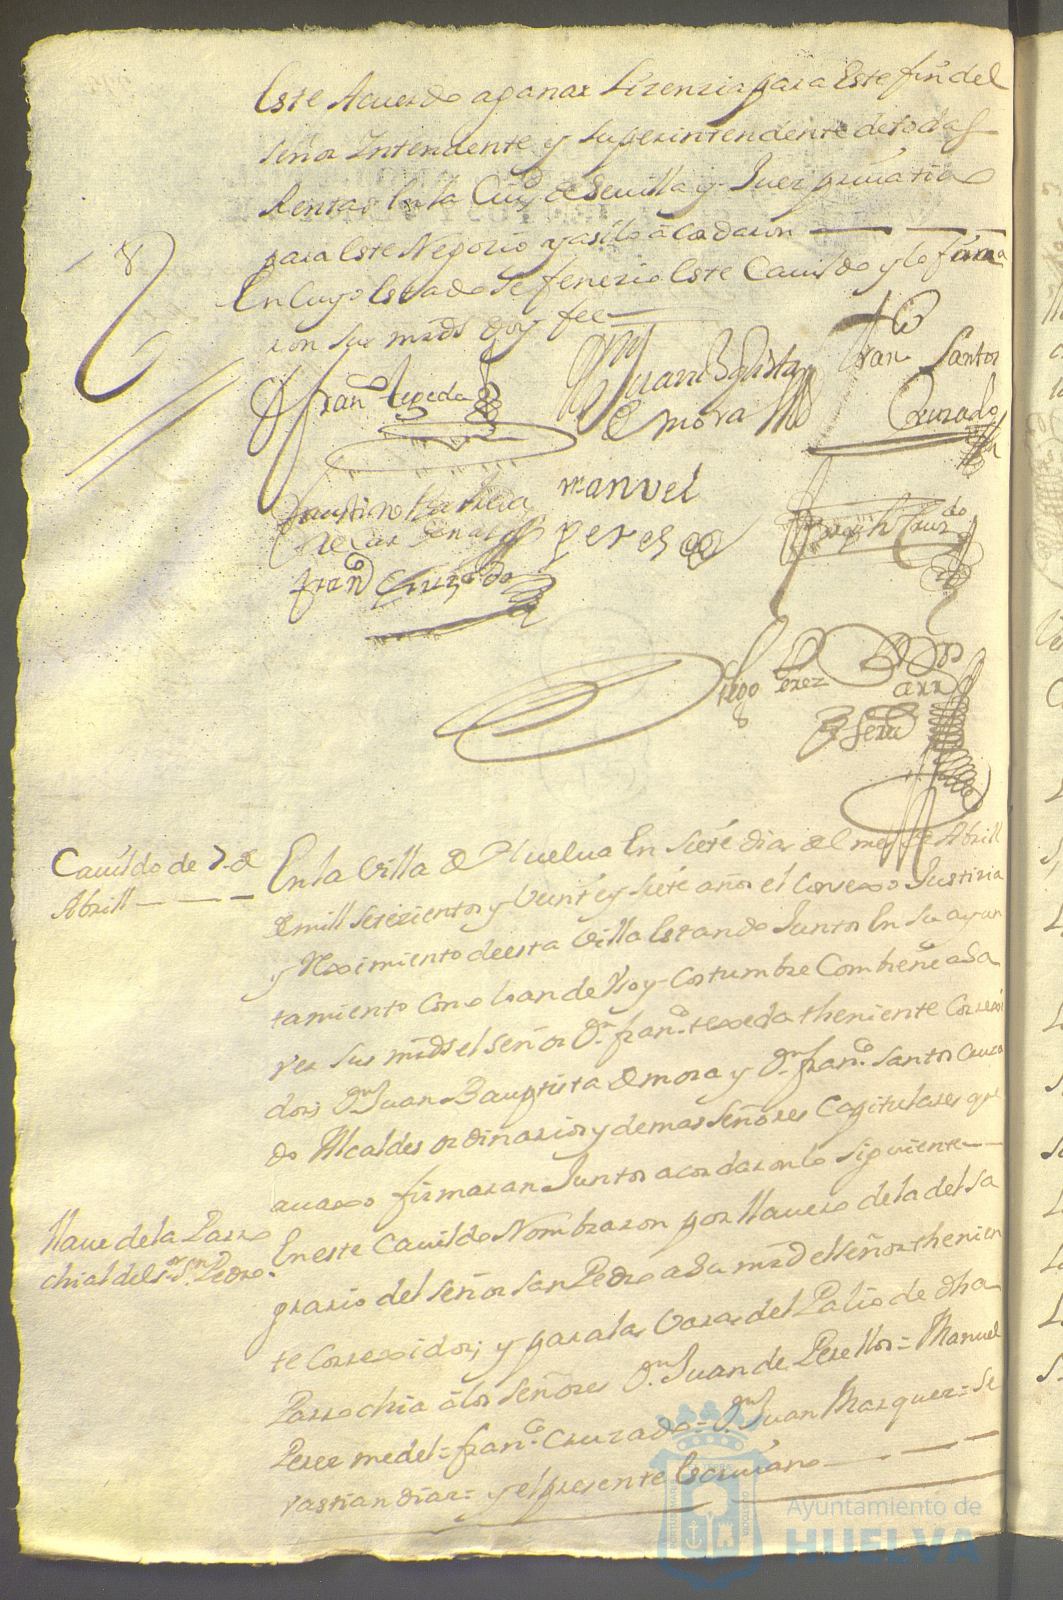 Este Acuerdo a ganar Lizenzia para Este fin del
señor Intendente y superintendente de todas
Rentas En la Ciud. de Sevilla y Juez privatibo
para Este Negozio y asi lo acordaron
En Cuyo Estado Se fenezio Este Cauildo y lo firma
ron sus mrds doy fee
8
Juan Bptista
de Mora
Fran Santos
Cruzado
Franco. texeda
manuel
perez
Joseph Cruzdo
Franco Cruzado
Diego Perez
Cauildo de 7 de
Abrill
En la Villa de Huelua En siete dias del mes de Abrill
de mill setezientos y Veinte y siete años el Consexo Justizia
y Reximiento de esta Villa Estando Juntos En su ayun
tamiento Como lo an de Uso y Costumbre Combiene a sa
ver sus mrds el señor Dn. Franco. texeda theniente Correxi
dor; Dn Juan Bauptista de mora y Dn. Franco. Santos Cruza
do Alcaldes ordinarios y demas Señores Capitulares que
auaxo firmaran Juntos acordaron lo siguiente
Llaue de la Parro
chial del sor. Sn. Pedro.
En este Cauildo Nombraron por llauero de la del Sa
grario del señor San Pedro a su mrd el señor thenien
te Correxidor; y para las Varas del Palio de dha
Parrochia â los señores Dn. Juan de Perellos = Manuel
Perez medel = Franco. Cruzado = Dn. Juan Marquez = Se
vastian diaz = y el presente Escriuano
Ayuntamiento de
HUELVA